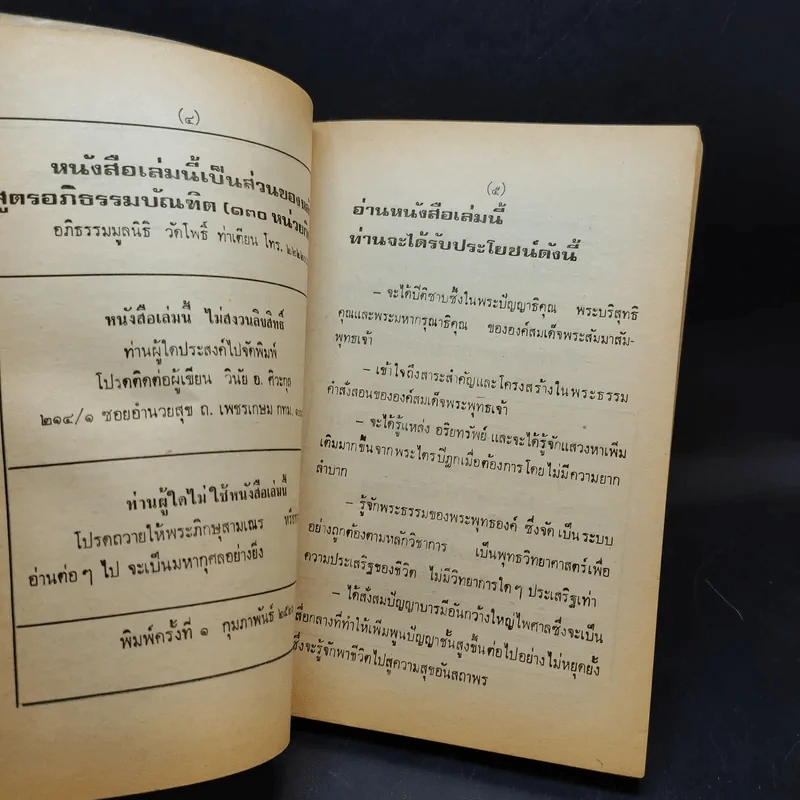 (๔)
หนังสือเล่มนี้เป็นส่วนของ
สูตรอภิธรรมบัณฑิต (๑๓๐ หน่วย
อภิธรรมมูลนิธิ วัดโพธิ์ ท่าเตียน โทร.
หนังสือเล่มนี้ ไม่สงวนลิขสิทธิ์
ท่านผู้ใดประสงค์ไปจัดพิมพ์
โปรดติดต่อผู้เขียน วินัย อ. ศิวะกุล
๒๑๔/๑ ซอยอำนวยสุข ถ. เพชรเกษม กทม.
ท่านผู้ใดไม่ใช้หนังสือเล่มนี้
โปรดถวายให้พระภิกษุสามเณร
อ่านต่อๆ ไป จะเป็นมหากุศลอย่างยิ่ง
พิมพ์ครั้งที่ ๑ กุมภาพันธ์
(๕)
อ่านหนังสือเล่มนี้
ท่านจะได้รับประโยชน์ดังนี้
– จะได้ปีติซาบซึ้งในพระปัญญาธิคุณ พระบริสุทธิ
คุณและพระมหากรุณาธิคุณ ขององค์สมเด็จพระสัมมาสัม-
พุทธเจ้า
– เข้าใจถึงสาระสำคัญและโครงสร้างในพระธรรม
คำสั่งสอนขององค์สมเด็จพระพุทธเจ้า
– จะได้รู้แหล่ง อริยทรัพย์ และจะได้รู้จักแสวงหาเพิ่ม
เติมมากขึ้นจากพระไตรปิฎกเมื่อต้องการโดยไม่มีความยาก
ลำบาก
– รู้จักพระธรรมของพระพุทธองค์ ซึ่งจัดเป็นระบบ
อย่างถูกต้องตามหลักวิชาการ เป็นพุทธวิทยาศาสตร์เพื่อ
ความประเสริฐของชีวิต ไม่มีวิทยาการใดๆ ประเสริฐเท่า
– ได้สั่งสมปัญญาบารมีอันกว้างใหญ่ไพศาลซึ่งจะเป็น
สื่อกลางที่ทำให้เพิ่มพูนปัญญาชั้นสูงขึ้นต่อไปอย่างไม่หยุดยั้ง
ซึ่งจะรู้จักพาชีวิตไปสู่ความสุขอันสถาพร